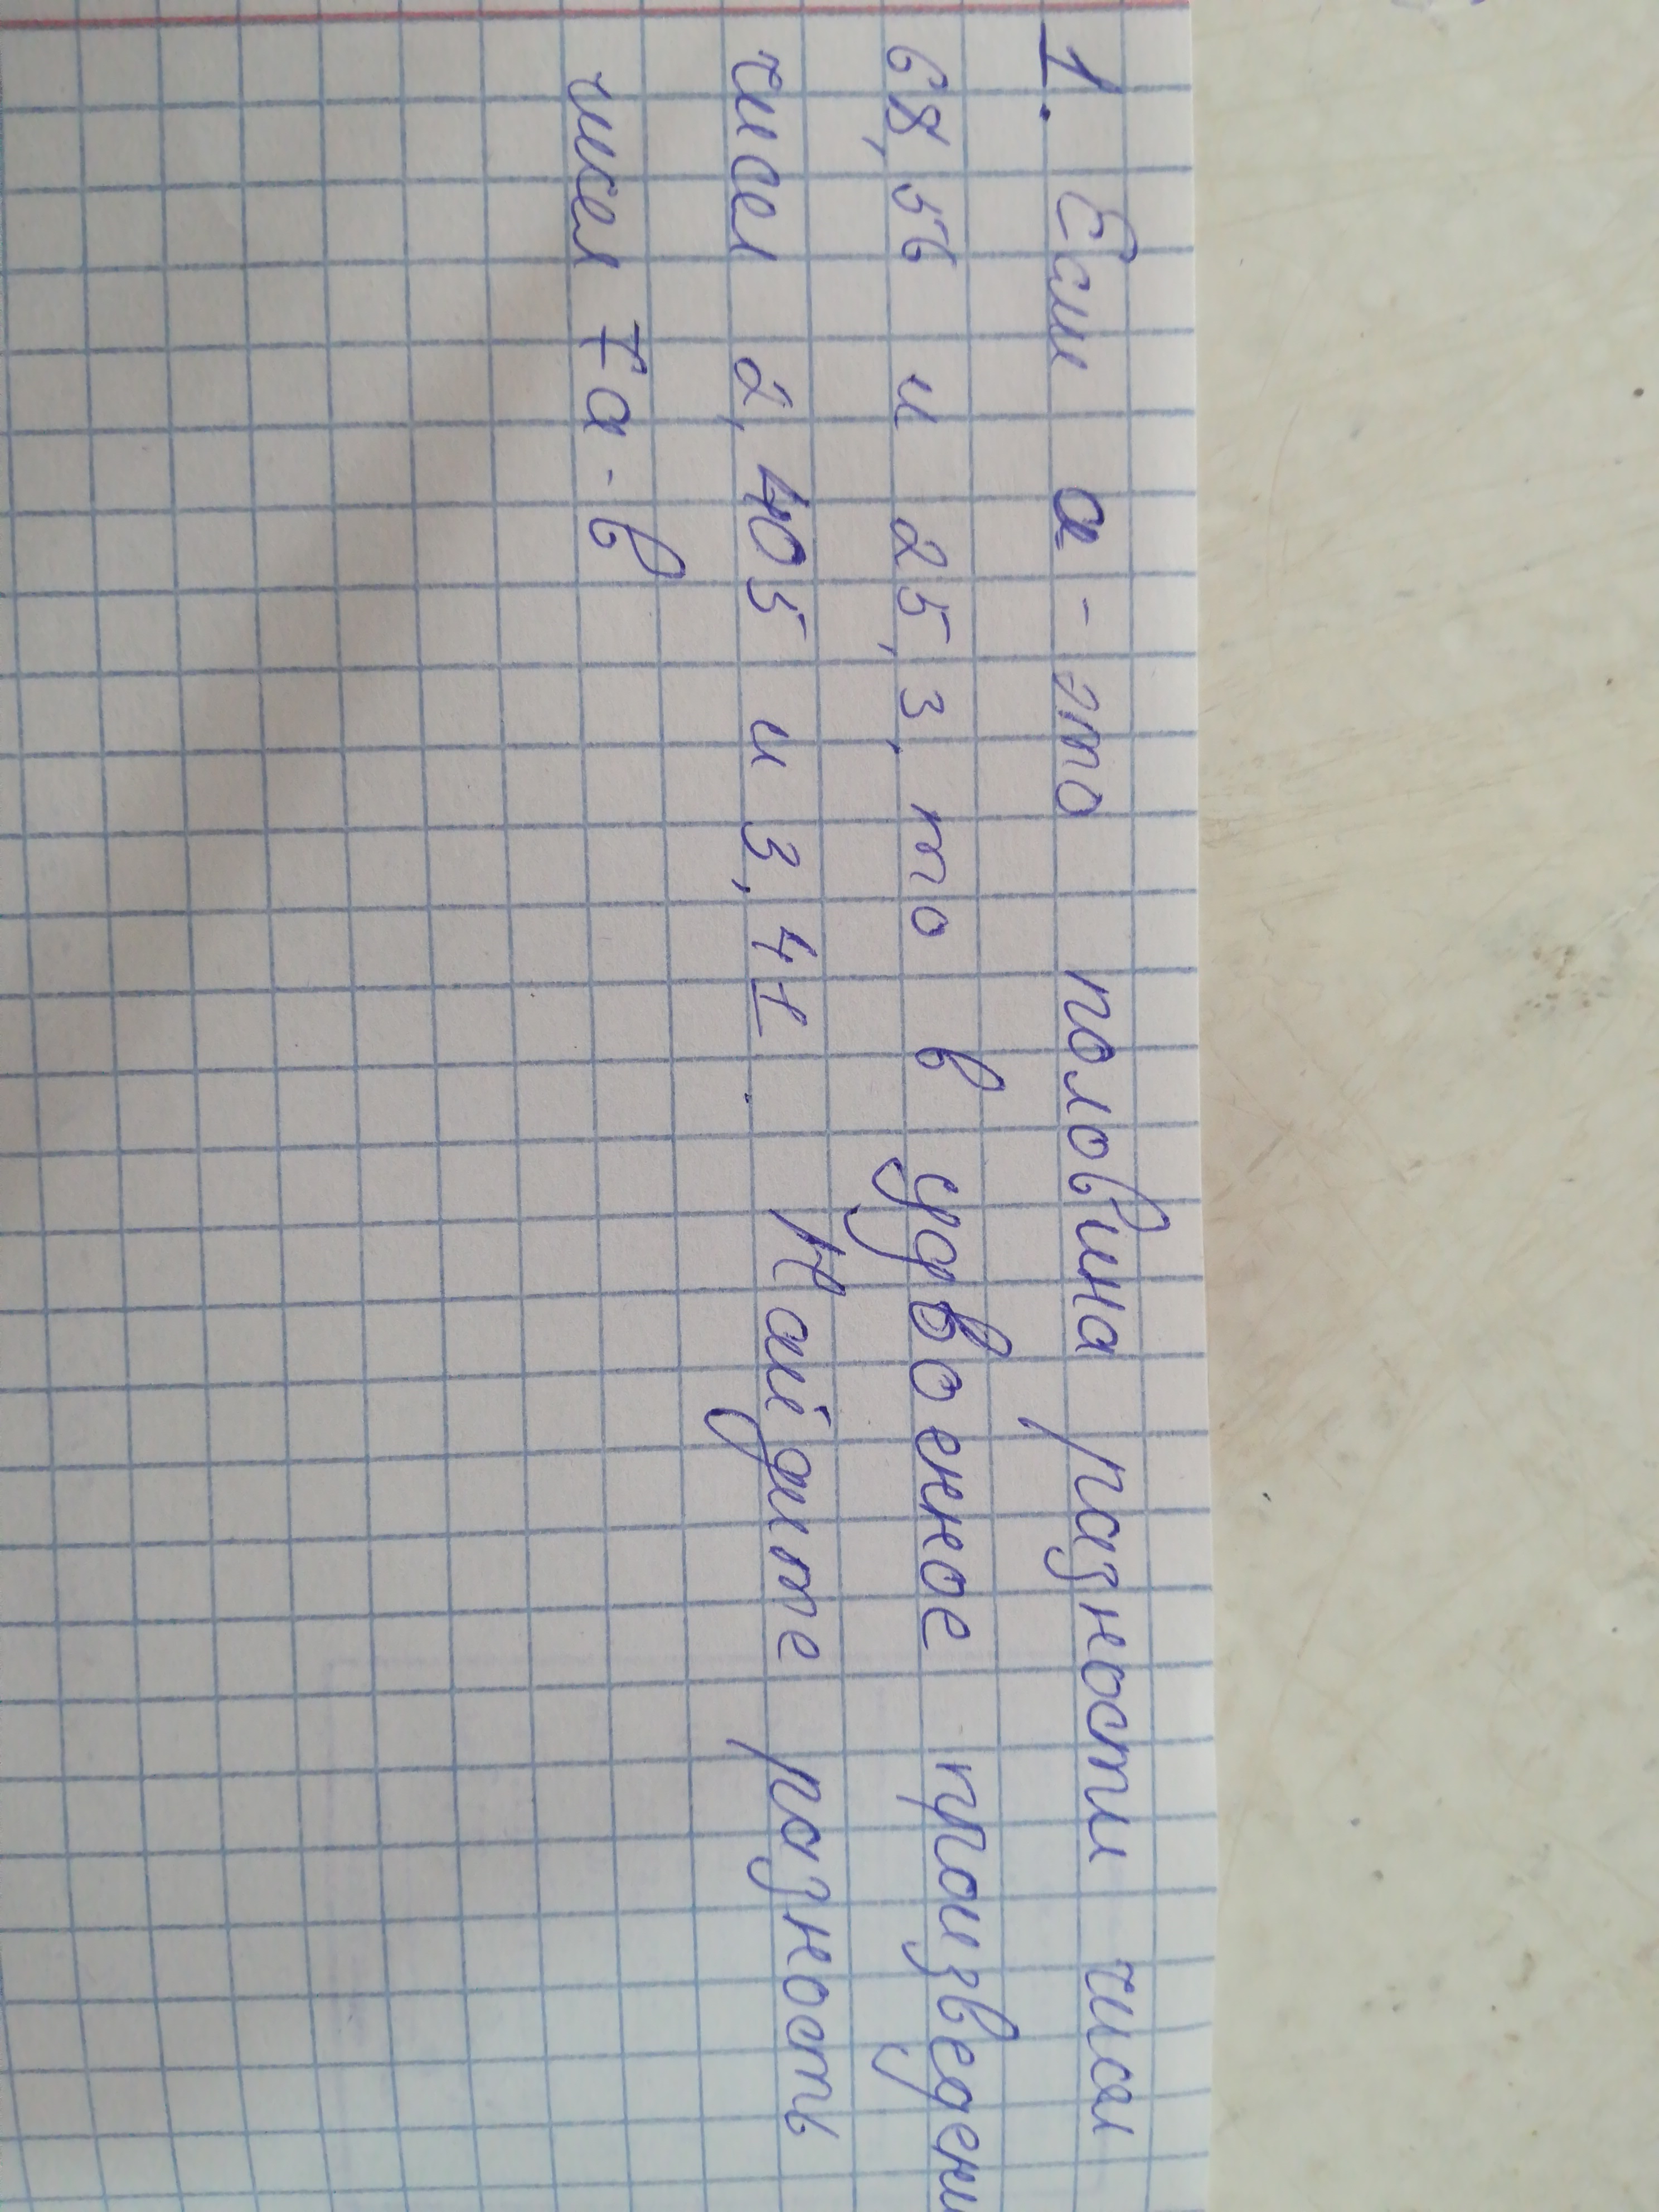 1. Если а - это половина разности чисел
68,56 и 25,3, то в удвоенное произведени
чисел 2,405 и 3,41. Найдите разность
чисел 7а - в